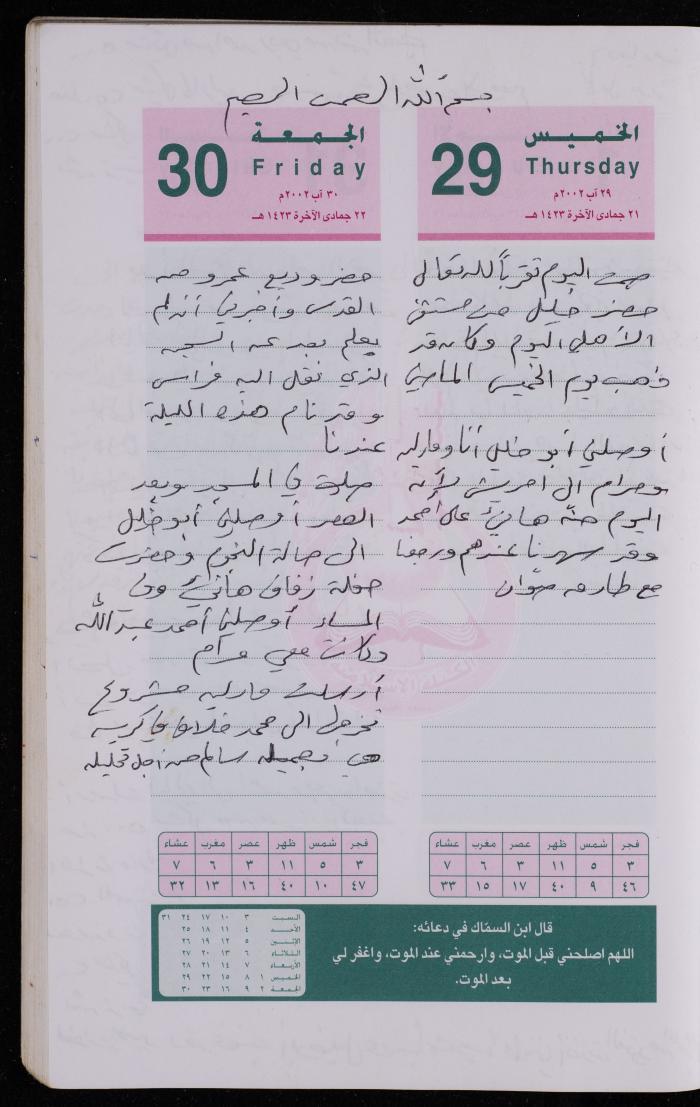 بسم الله الرحمن الرحيم
الخميس
Thursday
29
٢٩ آب ٢٠٠٢م
٢١ جمادى الآخرة ١٤٢٣هـ
صمت اليوم تقرباً لله تعالى
حضر خليل من مستشفى
الأهلي اليوم وكان قد
ذهب يوم الخميس الماضي
أوصلني أبو خليل أنا ومارليه
ومرام الى لأنه
اليوم حنّة هانئ على أحمد
وقد سهرنا عندهم ورجعنا
مع طارق صوان
فجر شمس ظهر عصر مغرب عشاء
٣ ٥ ١١ ٣ ٦ ٧
٤٦ ٩ ٤٠ ١٧ ١٥ ٣٣
الجمعة
Friday
30
٣٠ آب ٢٠٠٢م
٢٢ جمادى الآخرة ١٤٢٣هـ
حضر وديع عمرو من
القدس وأخبرني أنه لم
يعلم بعد عن السجن
الذي نقل اليه فراس
وقد نام هذه الليلة
عندنا
صليت في المسجد وبعد
العصر أوصلني أبو خليل
الى صالة النجوم وحضرت
حفلة زفاف هانئ وفي
المساء أوصلني أحمد عبد الله
وكانت معي مرام
أرسلت مارليه مشروع
تخرجها الى محمد
هي سالم من أجل تحليله
فجر شمس ظهر عصر مغرب عشاء
٣ ٥ ١١ ٣ ٦ ٧
٤٧ ١٠ ٤٠ ١٦ ١٣ ٣٢
قال ابن السمّاك في دعائه:
اللهم اصلحني قبل الموت، وارحمني عند الموت، واغفر لي
بعد الموت.
السبت ٣ ١٠ ١٧ ٢٤ ٣١
الأحد ٤ ١١ ١٨ ٢٥
الإثنين ٥ ١٢ ١٩ ٢٦
الثلاثاء ٦ ١٣ ٢٠ ٢٧
الأربعاء ٧ ١٤ ٢١ ٢٨
الخميس ١ ٨ ١٥ ٢٢ ٢٩
الجمعة ٢ ٩ ١٦ ٢٣ ٣٠